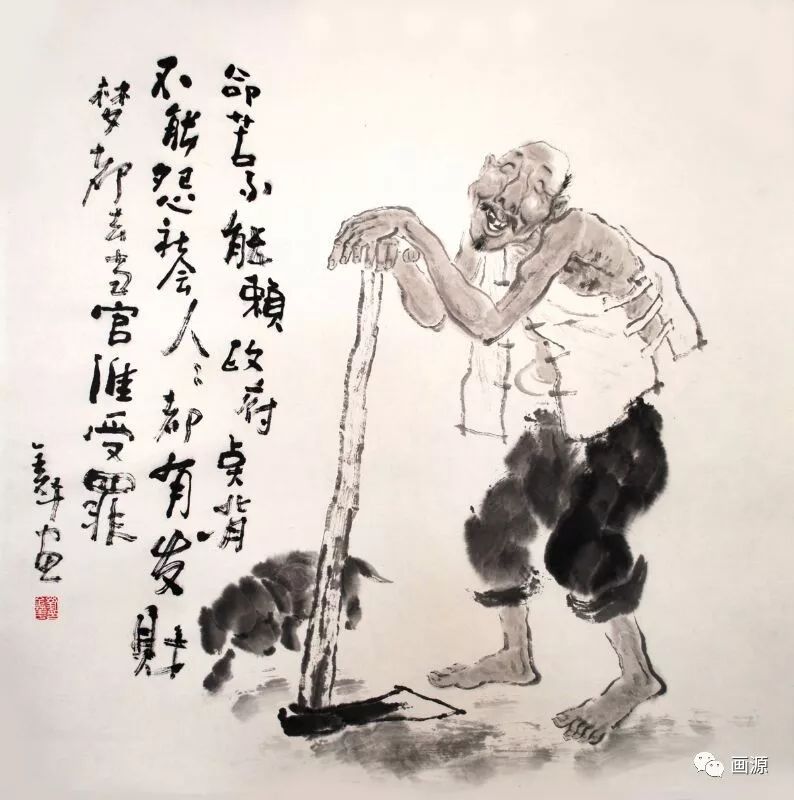 命苦不能賴政府点背
不能怨社会人々都有发財
梦都去当官谁受罪
画
画源